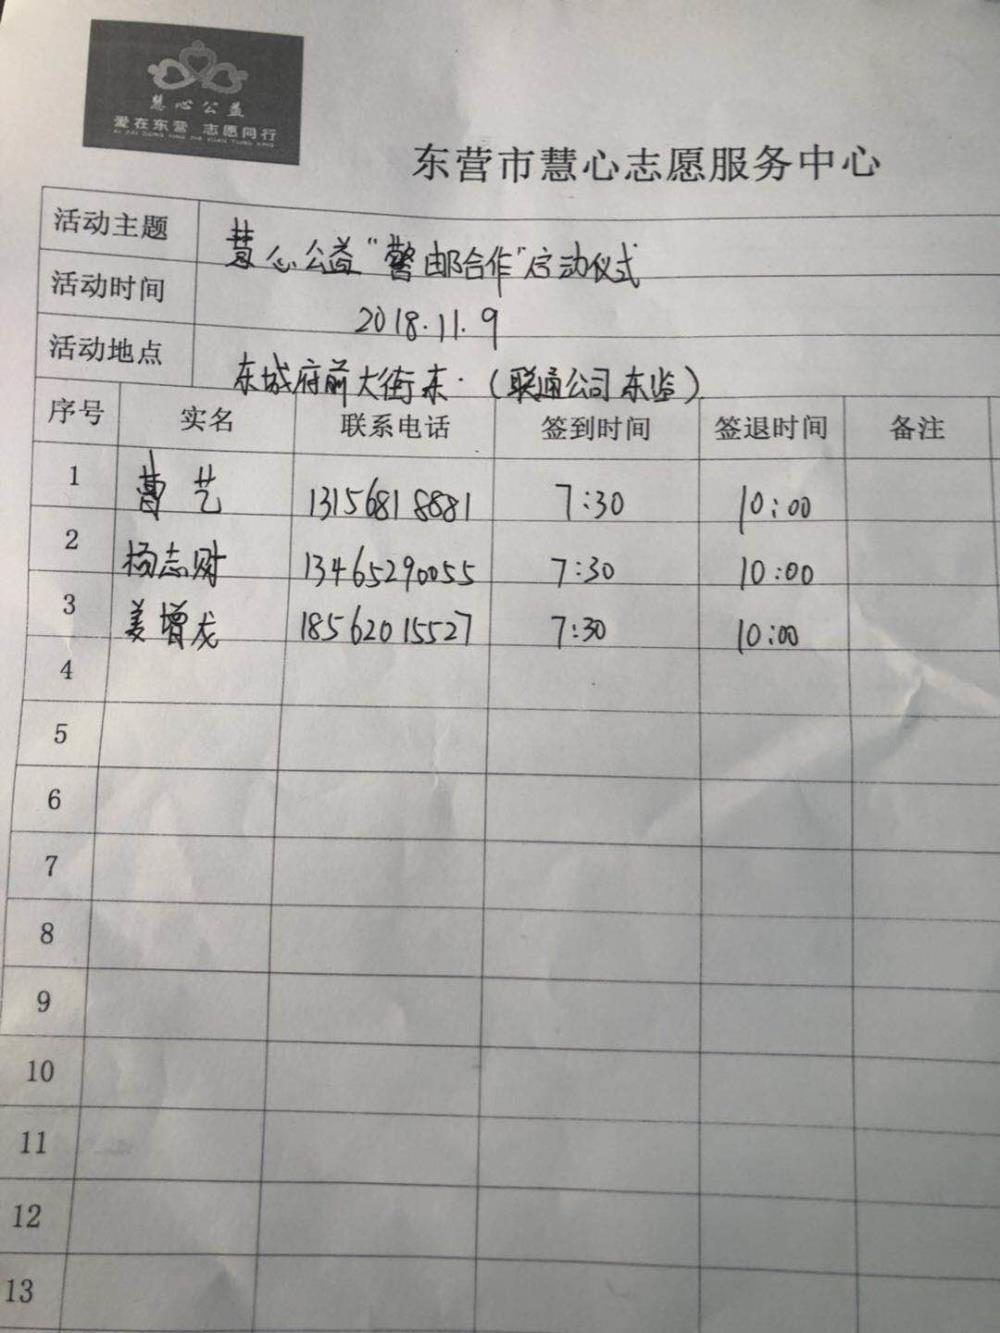 慧心公益
爱在东营 志愿同行
东营市慧心志愿服务中心
活动主题 慧心公益“警邮合作”启动仪式
活动时间 2018.11.9
活动地点 东城府前大街东.(联通公司东监)
序号 实名 联系电话 签到时间 签退时间 备注
1 曹艺 13156818881 7:30 10:00
2 杨志财 13465290055 7:30 10:00
3 姜增龙 18562015527 7:30 10:00
4
5
6
7
8
9
10
11
12
13